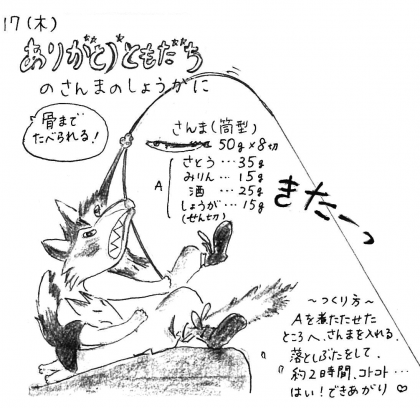 17(木)
ありがとうともだち
のさんまのしょうがに
骨まで
たべられる!
さんま(筒型)
50g×8切
A
さとう…35g
みりん…15g
酒…25g
しょうが…15g
(せん切)
きたーっ
~つくり方~
Aを煮たたせた
ところへ、さんまを入れる。
落としぶたをして、
約2時間、コトコト…
はい!できあがり♡